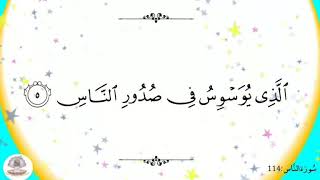 ٱلَّذِى يُوَسْوِسُ فِى صُدُورِ ٱلنَّاسِ ٥
سُورَةُ النَّاس:114